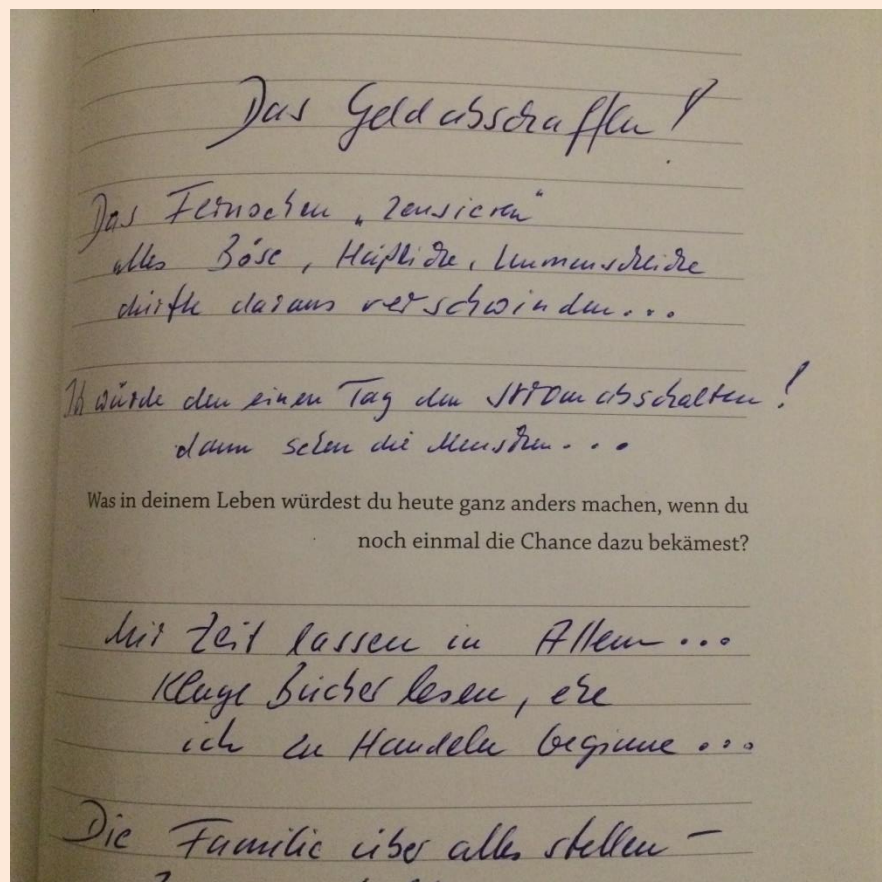 Das Geld abschaffen!
Das Fernsehen „zensieren“
alles Böse, Häßliche, Unmenschliche
dürfte daraus verschwinden...
Ich würde den einen Tag den Strom abschalten!
dann sehen die Menschen...
Was in deinem Leben würdest du heute ganz anders machen, wenn du
noch einmal die Chance dazu bekämest?
Mir Zeit lassen in Allem...
Kluge Bücher lesen, ehe
ich zu Handeln beginne...
Die Familie über alles stellen –